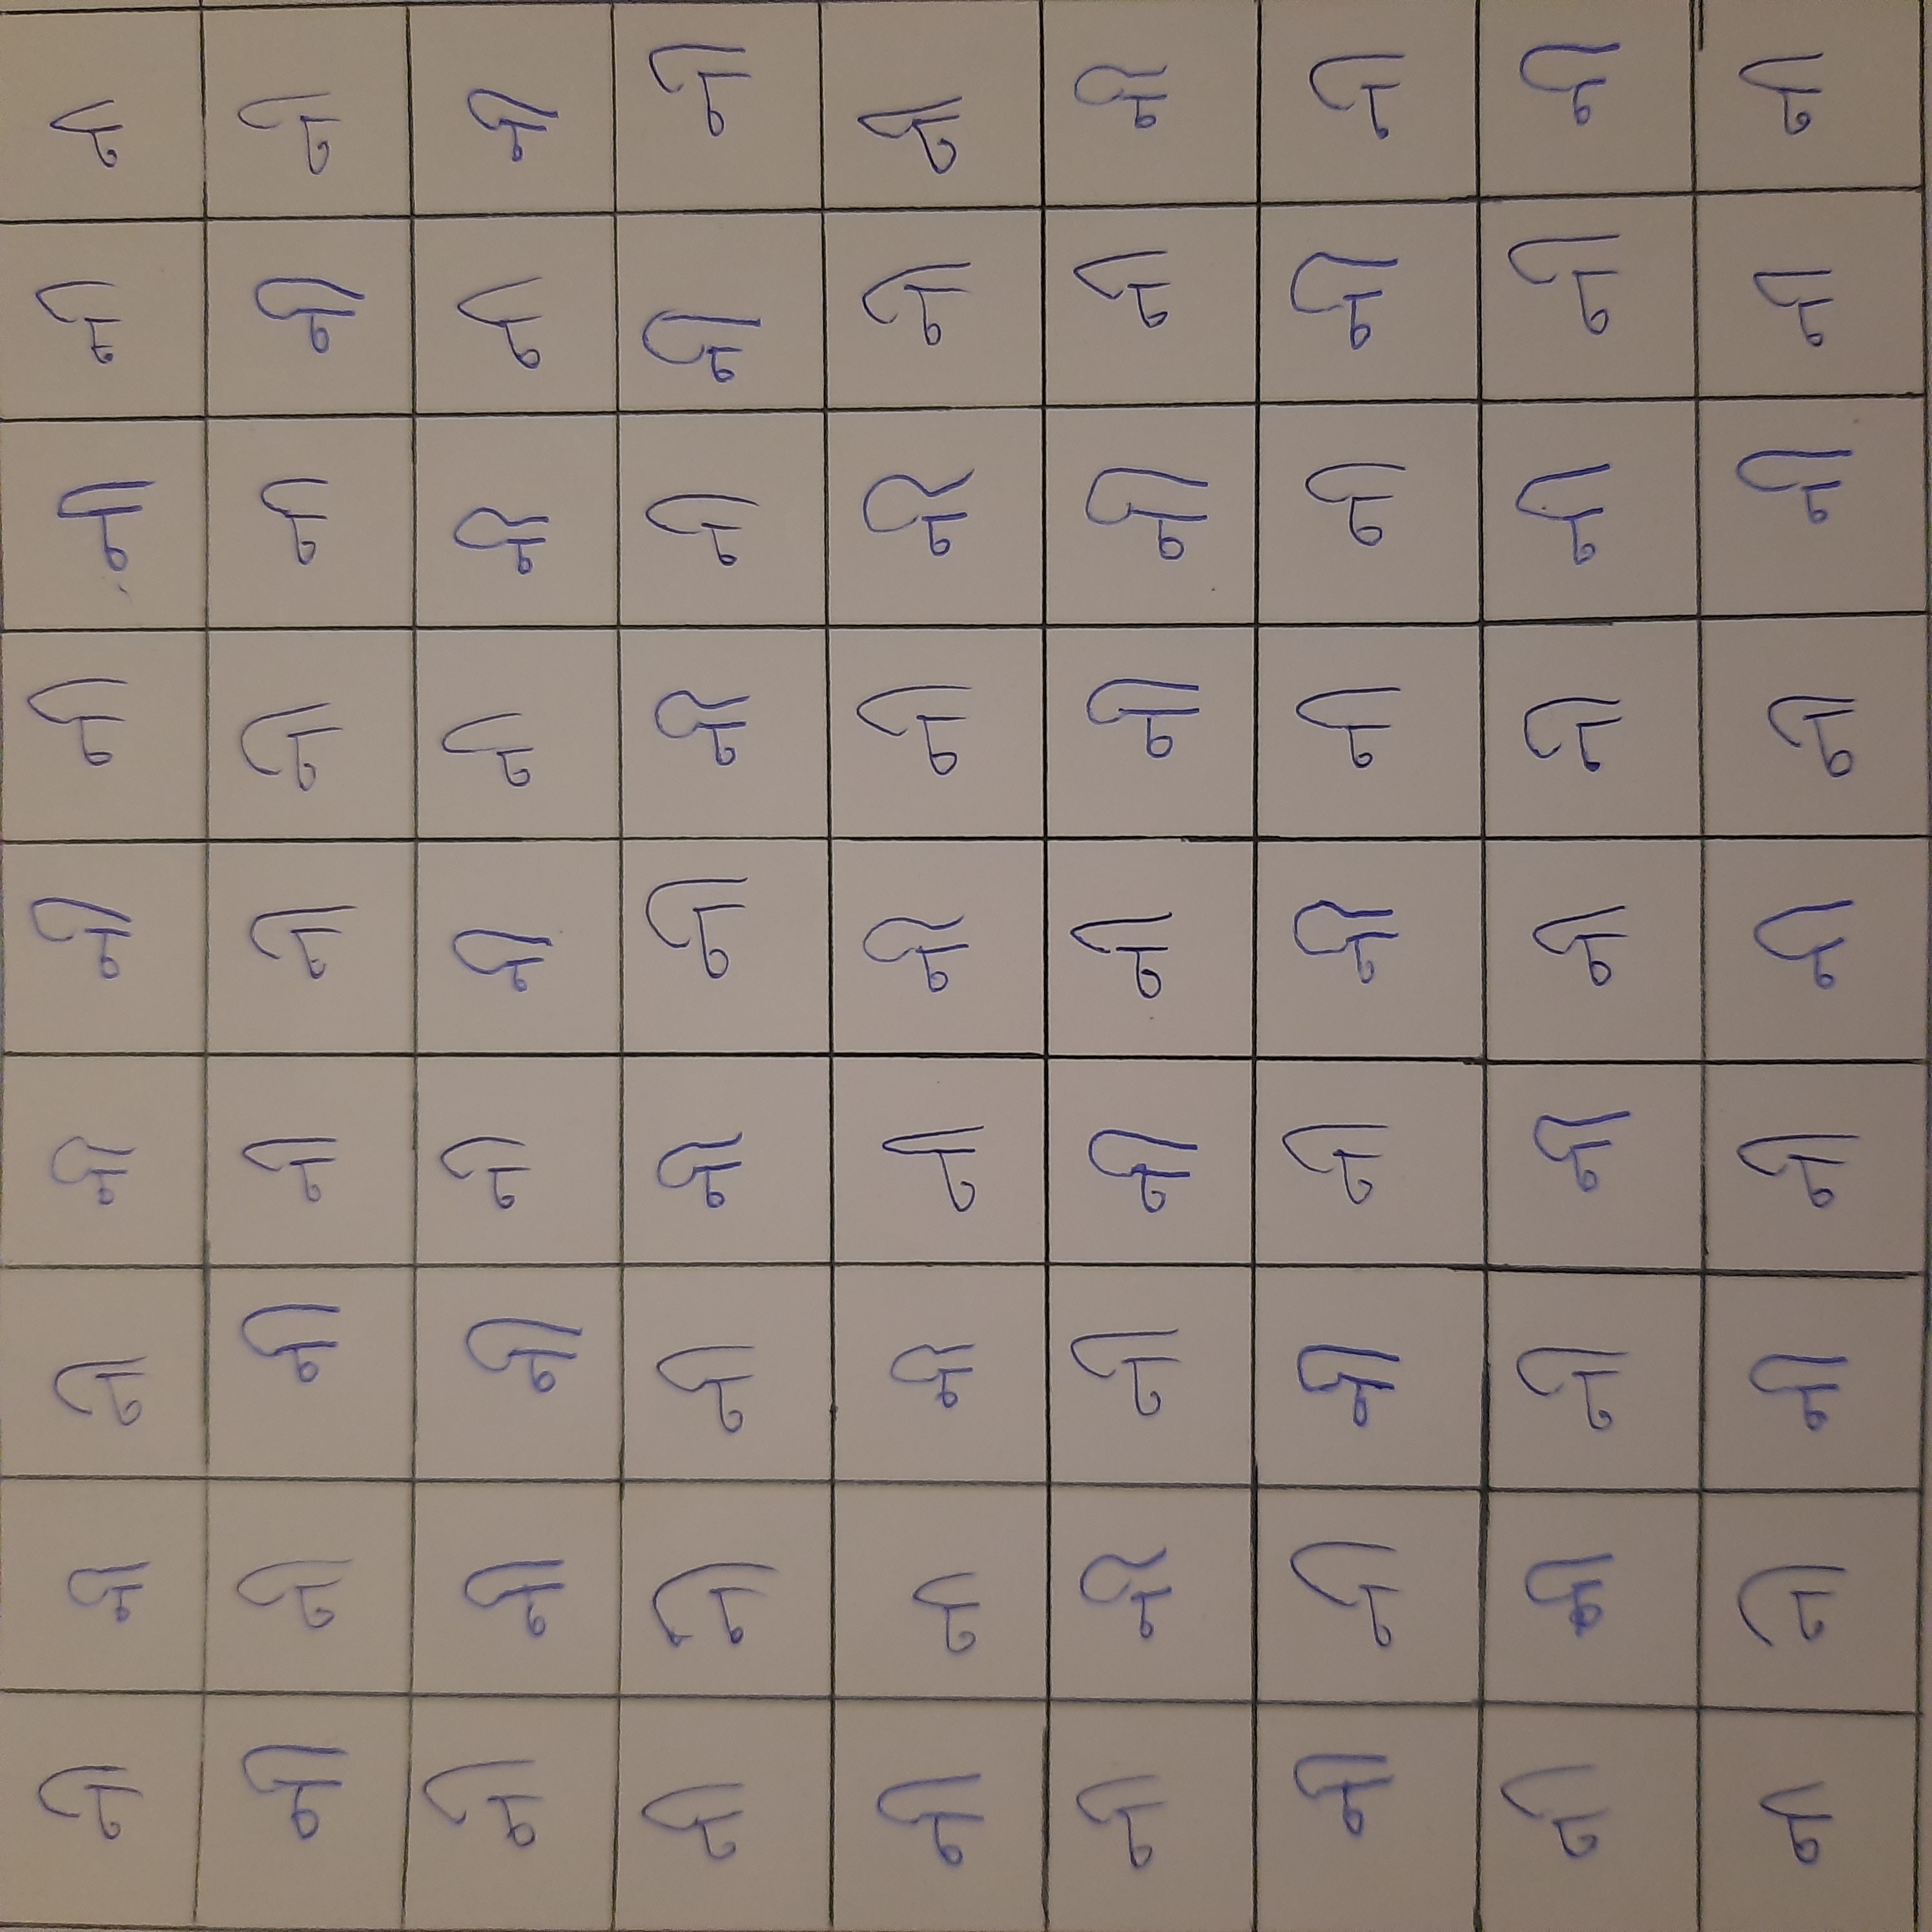 नी नी नी नी नी नी नी नी नी
नी नी नी नी नी नी नी नी नी
नी नी नी नी नी नी नी नी नी
नी नी नी नी नी नी नी नी नी
नी नी नी नी नी नी नी नी नी
नी नी नी नी नी नी नी नी नी
नी नी नी नी नी नी नी नी नी
नी नी नी नी नी नी नी नी नी
नी नी नी नी नी नी नी नी नी